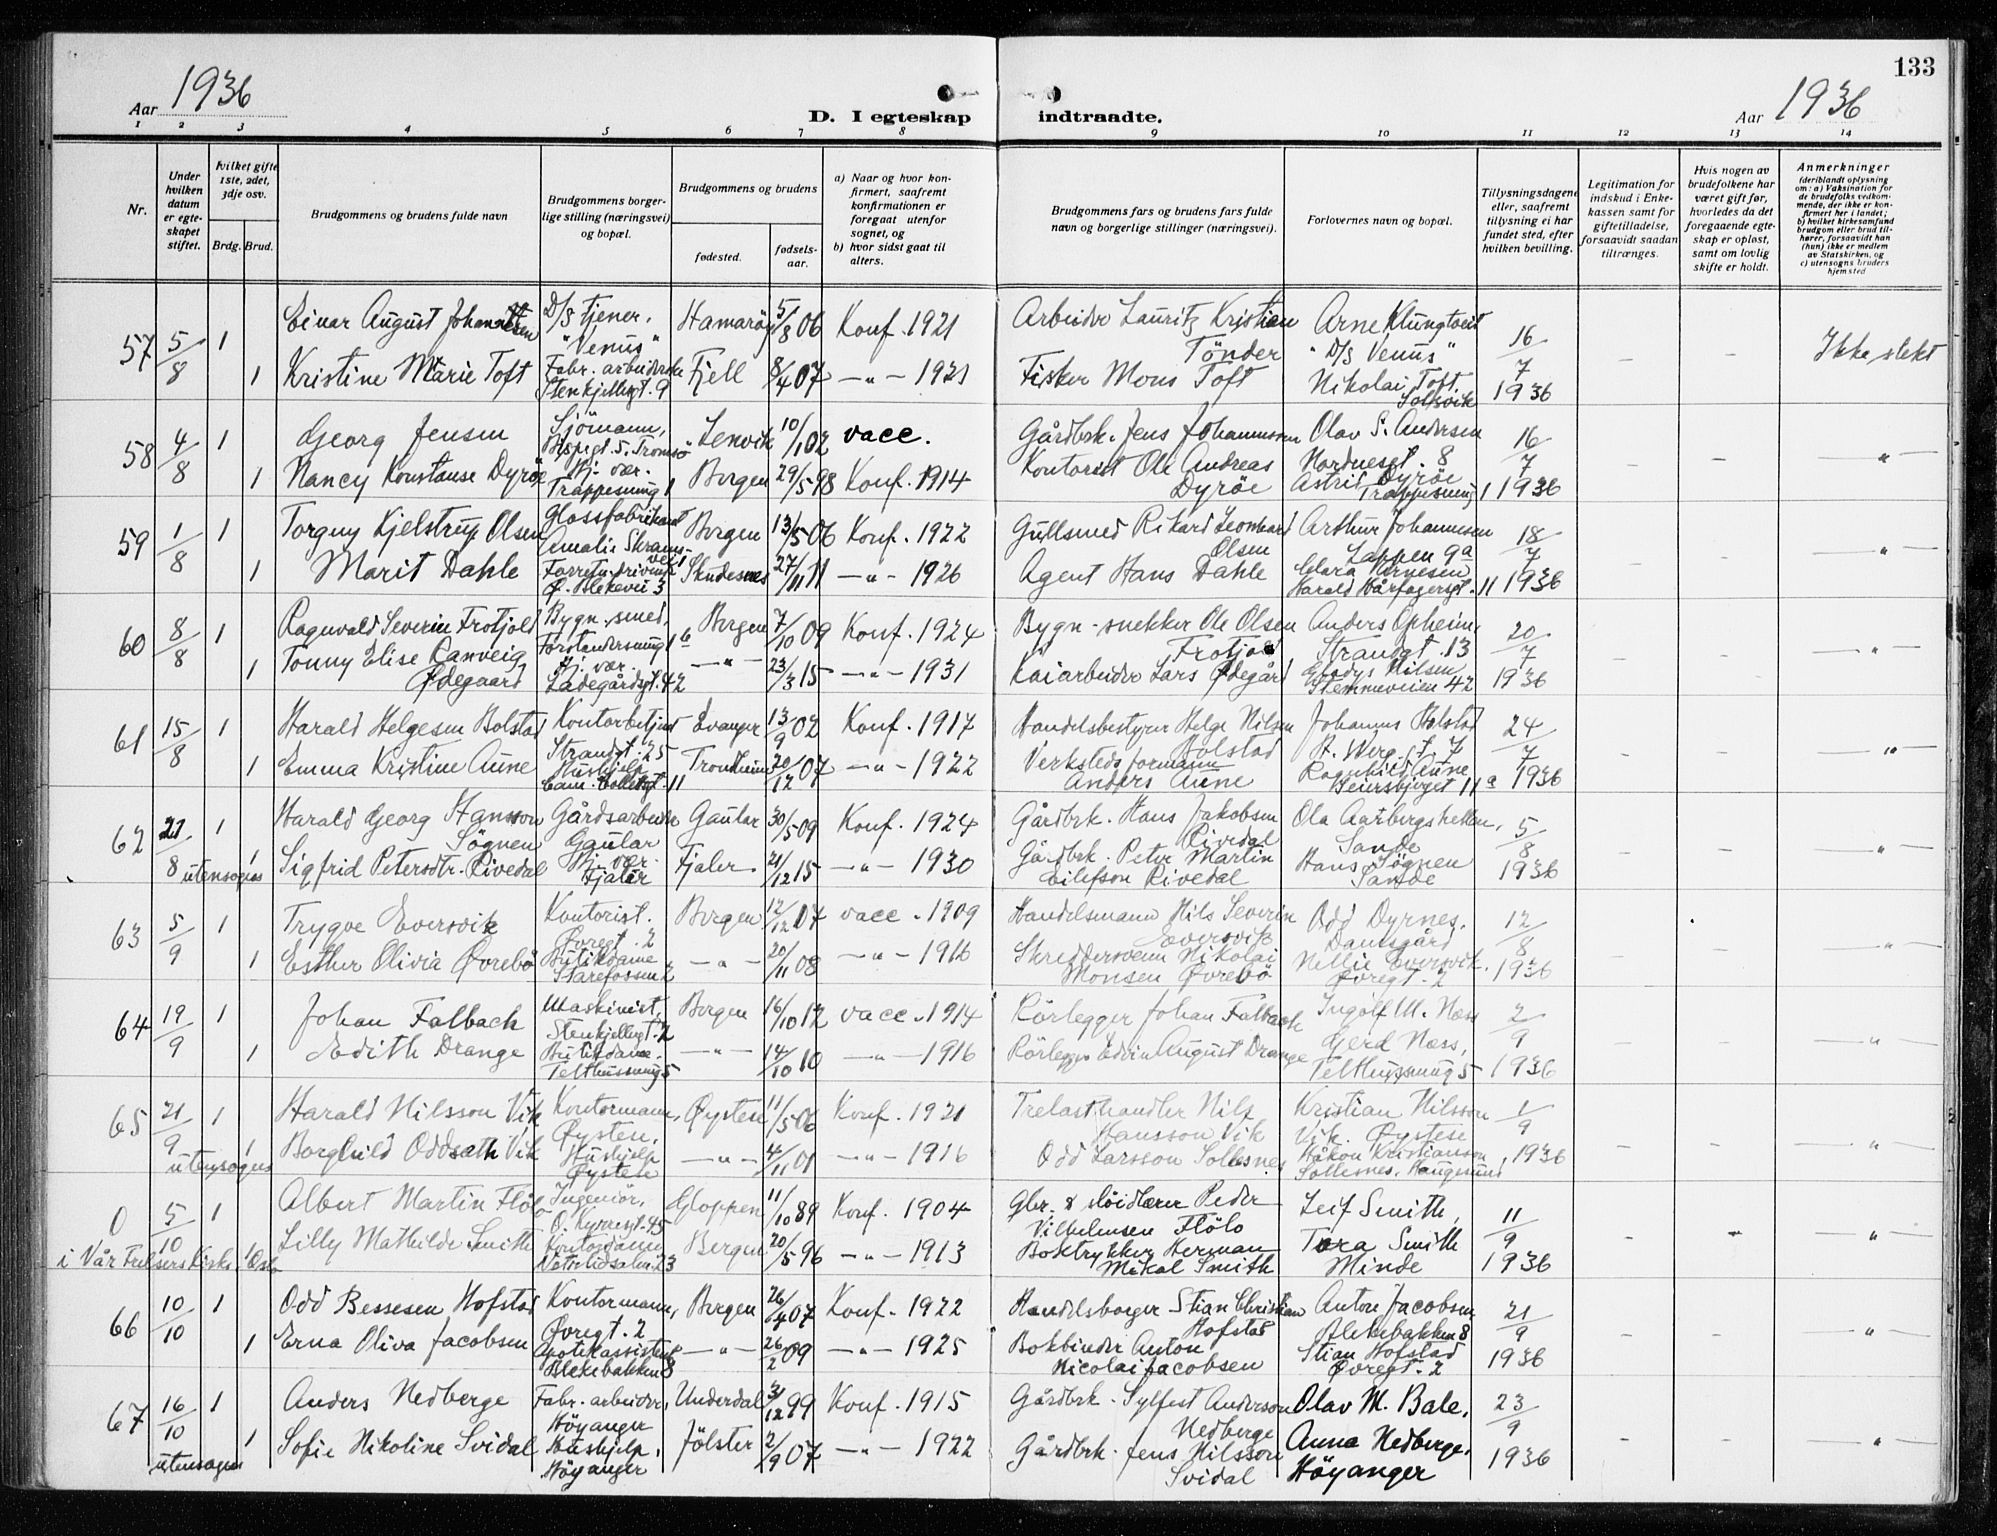 133
Aar 1936
D. I egteskap indtraadte.
Aar 1936
1 2 3 4 5 6 7 8 9 10 11 12 13 14
Nr.
Under hvilken datum er egteskapet stiftet.
hvilket gifte 1ste, 2det, 3dje osv.
Brdg. Brud.
Brudgommens og brudens fulde navn
Brudgommens borgerlige stilling (næringsvei) og bopæl.
Brudgommens og brudens
fødested.
fødselsaar.
a) Naar og hvor konfirmert, saafremt konfirmationen er foregaat utenfor sognet, og
b) hvor sidst gaat til alters.
Brudgommens fars og brudens fars fulde navn og borgerlige stillinger (næringsvei).
Forlovernes navn og bopæl.
Tillysningsdagene eller, saafremt tillysning ei har fundet sted, efter hvilken bevilling.
Legitimation for indskud i Enkekassen samt for giftetilladelse, forsaavidt saadan tiltrænges.
Hvis nogen av brudefolkene har været gift før, hvorledes da det foregaaende egteskap er opløst, samt om lovlig skifte er holdt.
Anmerkninger
(deriblandt oplysning om: a) Vaksination for de brudefolks vedkommende, der ikke er konfirmert her i landet; b) hvilket kirkesamfund brudgom eller brud tilhører, forsaavidt han (hun) ikke er medlem av Statskirken, og c) utensogns bruders hjemsted
57 5/8 1 Einar August Johannessen D/S tjener, "Venus" Hamarøy 5/8 06 Konf. 1921 Arbeider Lauritz Kristian Tönder Arne Klungtveit "D/S Venus" 16/7 1936 – – Ikke slekt
1 Kristine Marie Toft Fabr. arbeiderske Stenkjellegt. 9 Fjell 8/4 07 –"– 1921 Fisker Mons Toft Nikolai Toft, Solsvik
58 4/8 1 Georg Jensen Sjömann, Bispegt. 5. Tromsö Lenvik 10/1 02 vacc. Gårdbrk. Jens Johannessen Olav S. Andersen Nordnesgt. 8 16/7 1936 – – "
1 Nancy Konstanse Dyröe Hj. vær. Trappesmug 1 Bergen 29/5 98 Konf. 1914 Kontorist Ole Andreas Dyröe Astrid Dyröe Trappesmug 1
59 1/8 1 Torguy Kjelstrup Olsen Glassfabrikant Amalie Skramsvei 1 Bergen 13/5 06 Konf. 1922 Gullsmed Rikard Leonhard Olsen Arthur Johannesen Lappen 9a 18/7 1936 – – "
1 Marit Dahle Forretn. drivende Ø. Blekevei 3 Skudesnes 27/11 11 –"– 1926 Agent Hans Dahle Clara Arnesen Harald Hårfagersgt. 11
60 8/8 1 Ragnvald Severin Frotjold Bygn. smed, Forstandersmug 1 b Bergen 7/10 09 Konf. 1924 Bygn. snekker Ole Olsen Frotjold Anders Opheim, Strandgt. 13 20/7 1936 – – "
1 Tonny Elise Ranveig Ødegaard Hj. vær. Ladegårdsgt. 42 –"– 23/3 15 –"– 1931 Kaiarbeider Lars Ødegård Gladys Nilsen Stemmeveien 42
61 15/8 1 Harald Helgesen Bolstad Kontorbetjent Strandgt. 25 Evanger 13/9 02 Konf. 1917 Handelsbestyrer Helge Nilsen Bolstad Johannes Bolstad H. Werg. gt. 7 24/7 1936 – – "
1 Emma Kristine Aune Hushjelp Cam. Collettgt. 11 Trondheim 20/12 07 –"– 1922 Verkstedsformann Anders Aune Ragnhild Aune Geiersbjerget 11 a
62 21/8 1 Harald Georg Hansson Søgnen Gårdsarbeider Gaular Gaular 30/5 09 Konf. 1924 Gårdbrk. Hans Jakobsen Rivedal Ola Aarbergsholten, Sande 5/8 1936 – – "
utensogns 1 Sigfrid Petersdtr. Rivedal Hj. vær. Fjaler Fjaler 21/12 15 –"– 1930 Gårdbrk. Peter Martin Eilefson Rivedal Hans Søgnen Sande
63 5/9 1 Trygve Eversvik Kontorist. Øvregt. 2 Bergen 12/12 07 vacc. 1909 Handelsmann Nils Severin Eversvik Odd Dyrnes. Damsgård 12/8 1936 – – "
1 Esther Olivia Øvrebö Butikdame Starefossen 2 –"– 20/11 08 –"– 1916 Skreddersvenn Nikolai Monsen Øvrebö Nellie Eversvik. Øvregt. 2
64 19/9 1 Johan Falbach Maskinist, Stenkjellegt. 2 Bergen 16/10 12 vacc. 1914 Rörlegger Johan Falbach Ingolf M. Næss 2/9 1936 – – "
1 Edith Drange Butikdame. Telthussmug 5 –"– 14/10 10 –"– 1916 Rörlegger Edvin August Drange Gerd Næss, Telthussmug 5
65 21/9 1 Harald Nilsson Vik Kontormann, Øystese, Øystese 11/5 06 Konf. 1921 Trelasthandler Nils Hansson Vik Kristian Nilsson Vik. Øystese 1/9 1936 – – "
utensogns 1 Borghild Oddsdtr. Vik Hushjelp Øystese –"– 4/11 01 –"– 1916 Odd Larsson Sollesnes Håkon Kristianson Sollesnes, Haugesund
0 5/10 1 Albert Martin Flölo Ingeniör, O. Kyrresgt. 45 Gloppen 11/10 89 Konf. 1904 Gbr. & sløidlærer Peder Vilhelmsen Flölo Leif Smith, 11/9 1936 – – "
i Vår Frelsers Kirke. Oslo 1 Lilly Mathilde Smith Kontordame Bergen 20/5 96 –"– 1913 Boktrykker Herman Mikal Smith Tora Smith Minde
66 10/10 1 Odd Bessesen Hofstad Kontormann, Øvregt. 2 Bergen 26/4 07 Konf. 1922 Handelsborger Stian Christian Hofstad Anton Jacobsen, Blekebakken 8 21/9 1936 – – "
1 Erna Oliva Jacobsen Apotekassistent Blekebakken 8 –"– 26/2 09 –"– 1925 Bokbinder Anton Nicolai Jacobsen Stian Hofstad Øvregt. 2
67 16/10 1 Anders Nedberge Fabr. arbeider, Höyanger Underdal 31/12 99 Konf. 1915 Gårdbrk. Sylfest Anderson Nedberge Olav M. Bale, 23/9 1936 – – "
utensogns 1 Sofie Nikoline Svidal Hushjelp, Höyanger Jölster 2/9 07 –"– 1922 Gårdbrk. Jens Nilsson Svidal Anna Nedberge, Höyanger